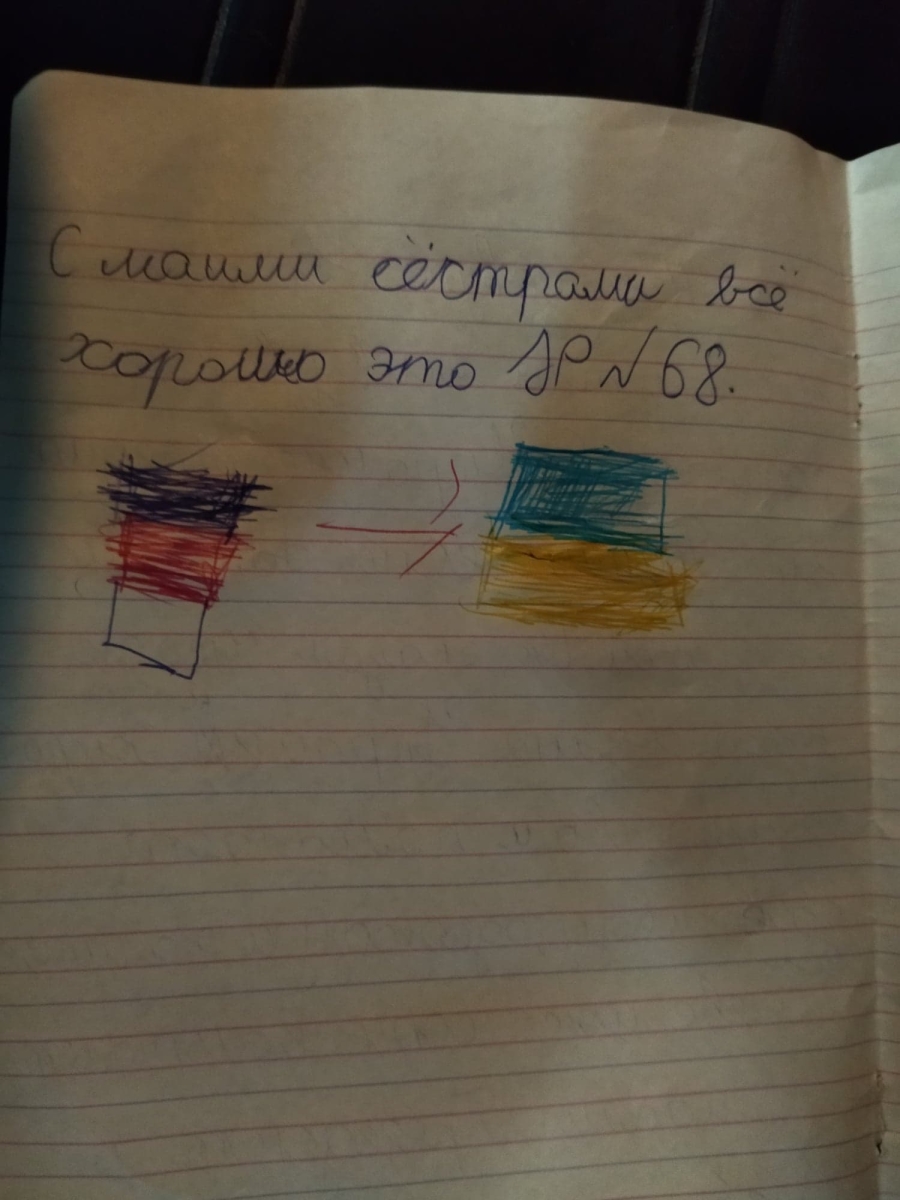 С маими сёстрами всё
хорошо это ЛР №68.